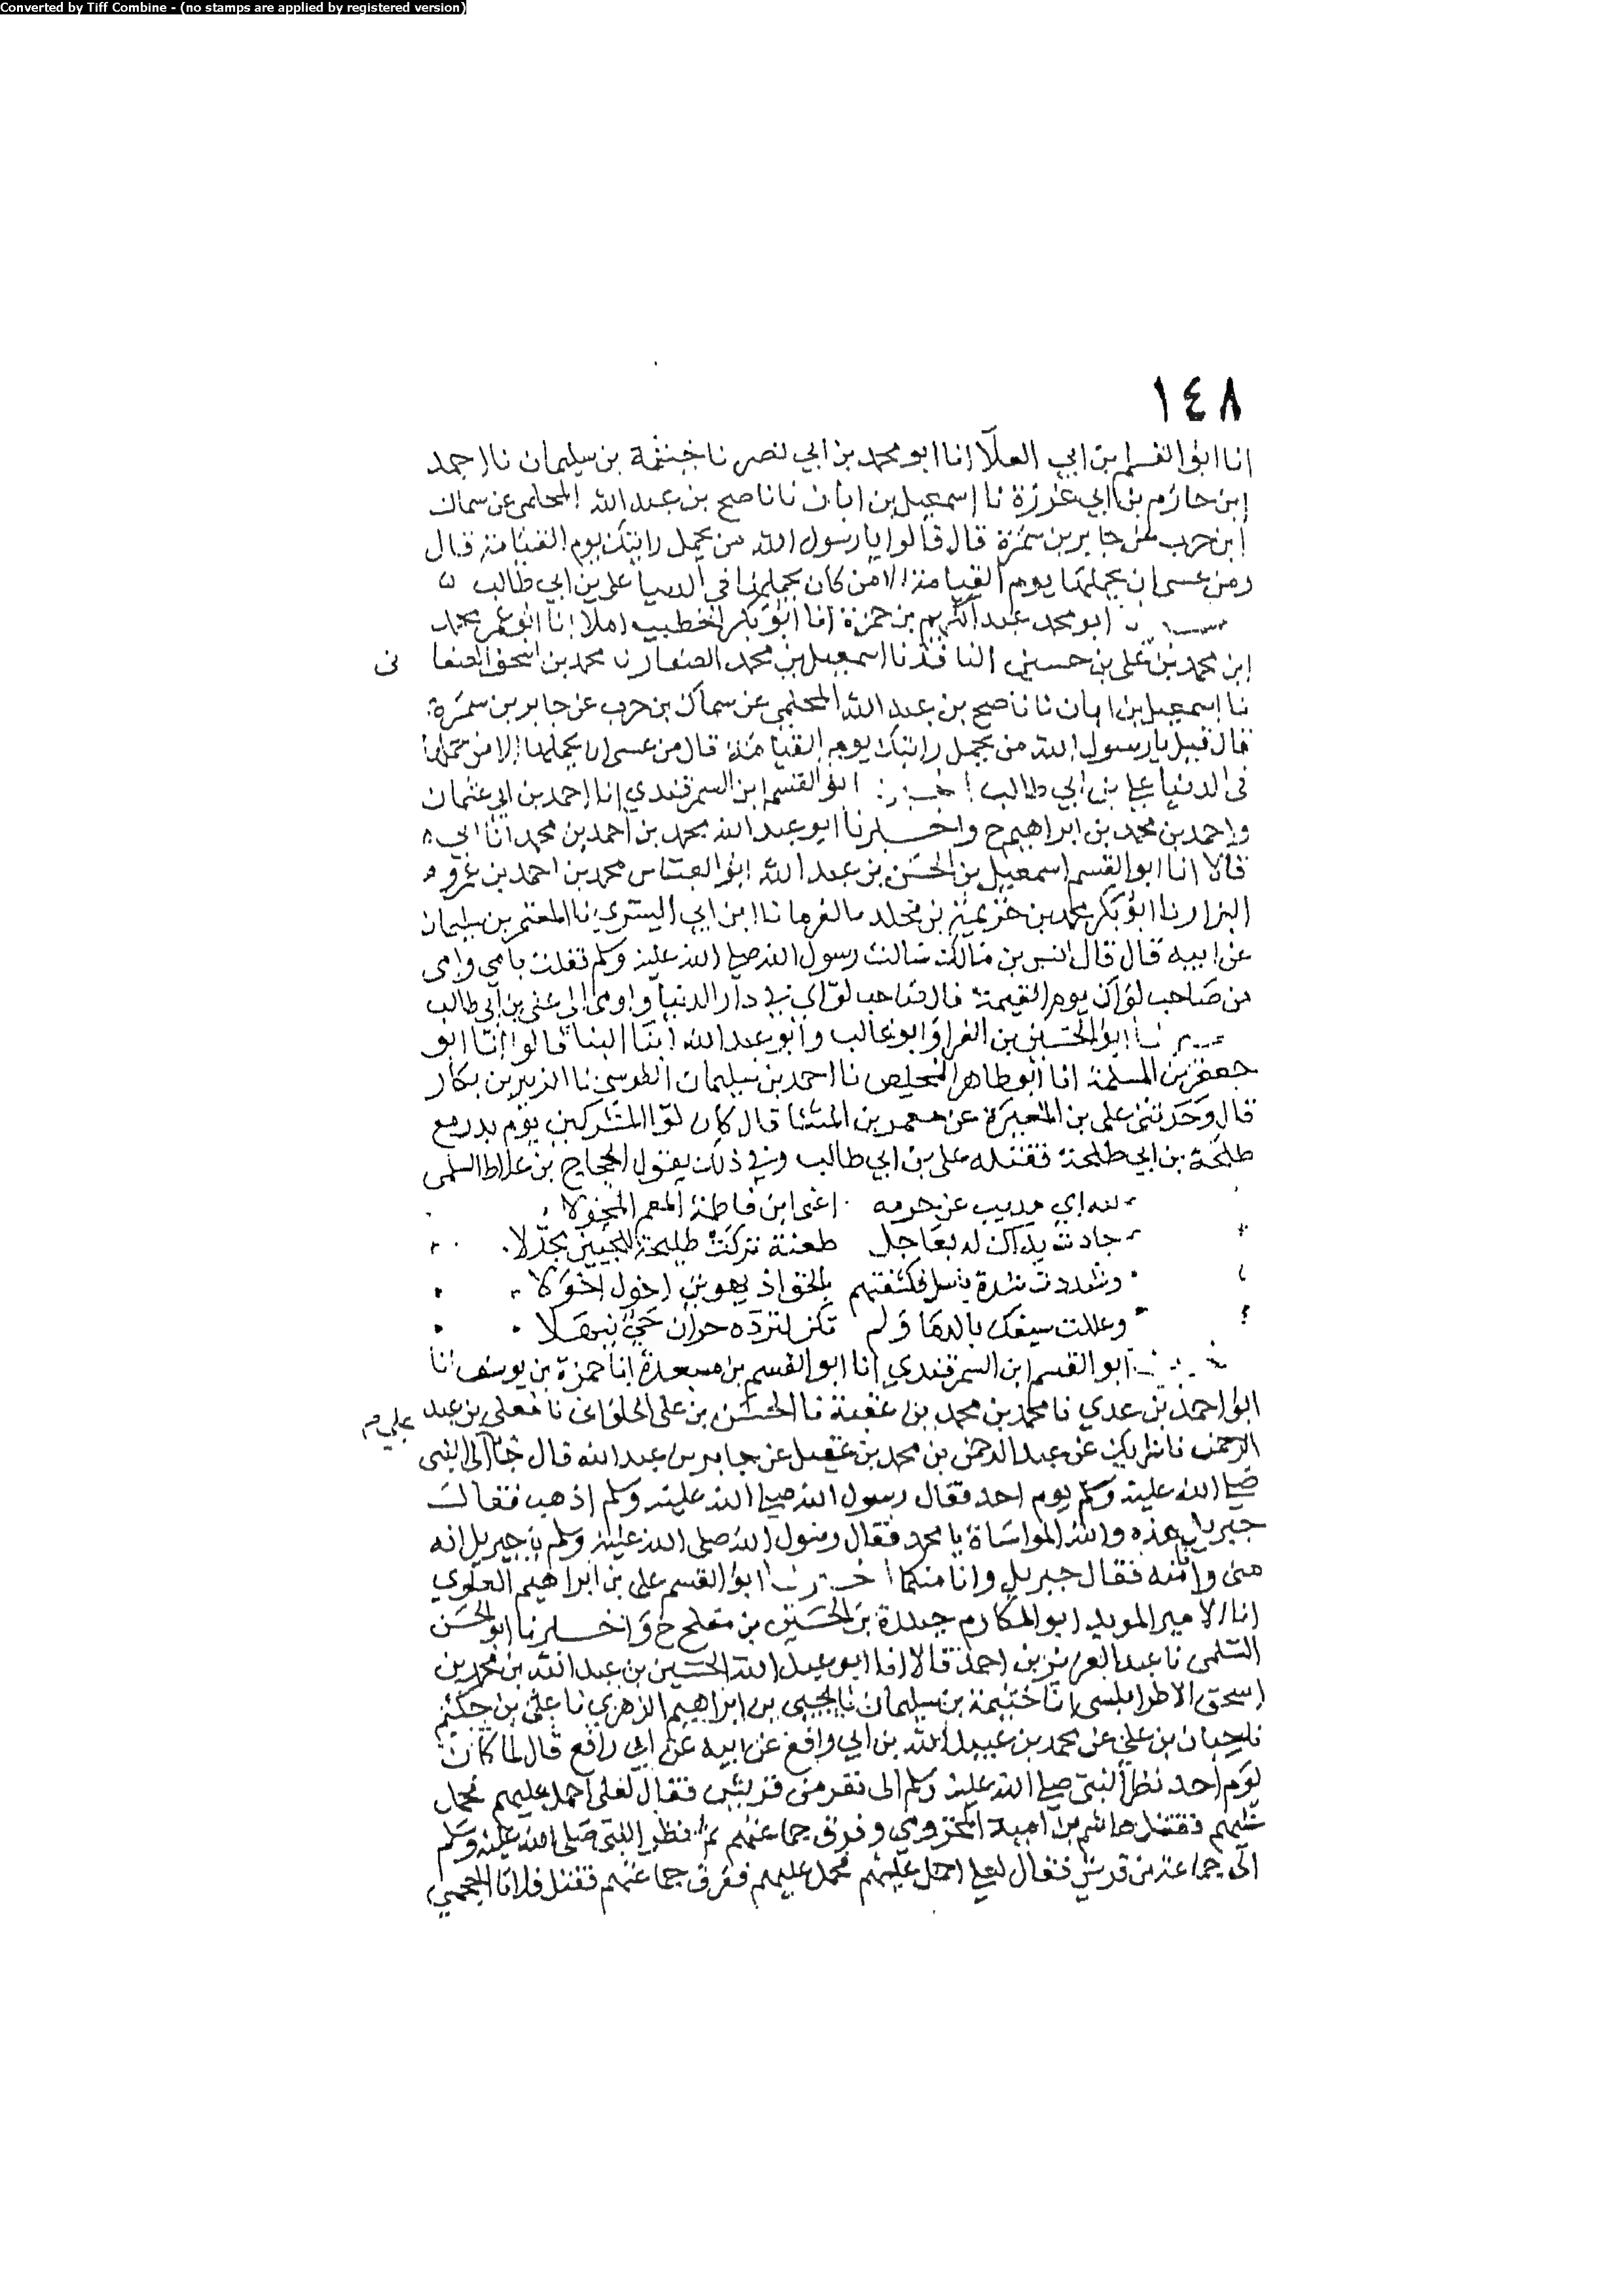 Converted by Tiff Combine - (no stamps are applied by registered version)
١٤٨
انا ابو القسم بن ابي العلا انا ابو محمد بن ابي نصر نا خيثمة بن سليمان نا احمد
ابن حازم بن ابي غرزة نا اسمعيل بن ابان نا ناصح بن عبد الله المحلمي عن سماك
ابن حرب عن جابر بن سمرة قال قالوا يا رسول الله من يحمل رايتك يوم القيامة قال
ومن عسى ان يحملها يوم القيامة الا من كان يحملها في الدنيا علي بن ابي طالب
ابو محمد عبد الكريم بن حمزة انا ابو بكر الخطيب املا انا ابو عمر محمد
ابن محمد بن علي بن حسين النا قد نا اسمعيل بن محمد الصفار نا محمد بن اسحق الصغا نى
نا اسمعيل بن ابان نا ناصح بن عبد الله المحلمي عن سماك بن حرب عن جابر بن سمرة
قال قيل يا رسول الله من يحمل رايتك يوم القيامة قال من عسى ان يحملها الا من حملها
في الدنيا علي بن ابي طالب ابو القسم ابن السمرقندي انا احمد بن ابي عثمان
واحمد بن محمد بن ابراهيم ح واخبرنا ابو عبد الله محمد بن احمد بن محمد انا ابي
قالا انا ابو القسم اسمعيل بن الحسن بن عبد الله ابو العباس محمد بن احمد بن عمرو
البزار نا ابو بكر محمد بن خزيمة بن مخلد بالفرما نا ابن ابي السري نا المعتمر بن سليمان
عن ابيه قال قال انس بن مالك سالت رسول الله صلى الله عليه وسلم فقلت بابي وامي
من صاحب لوائك يوم القيمة قال صاحب لوآي في دار الدنيا واومى الى علي بن ابي طالب
ابو الحسين بن الفرا وابو غالب وابو عبد الله ابنا البنا قالوا انا ابو
جعفر بن المسلمة انا ابو طاهر المخلص نا احمد بن سليمان الطوسي نا الزبير بن بكار
قال وحدثني علي بن المغيرة عن معمر بن المثنا قال كان لوا المشركين يوم بدر مع
طلحة بن ابي طلحة فقتله علي بن ابي طالب وفي ذلك يقول الحجاج بن علاط السلمي
لله اي مذبب عن حرمه اعني ابن فاطمة المعم المخولا
جادت يداك له بعاجل طعنة تركت طليحة للجبين مجدلا
وشددت شدة باسل فكشفتهم بالحق اذ يهوين اخول اخولا
وعللت سيفك بالدما ولم تكن لترده حران حتى ينهلا
ابو القسم ابن السمرقندي انا ابو القسم بن مسعدة انا حمزة بن يوسف انا
ابو احمد بن عدي نا محمد بن محمد بن عقبة نا الحسن بن علي الحلواني نا معلى بن عبد
الرحمن نا شريك عن عبد الرحمن بن محمد بن عقيل عن جابر بن عبد الله قال جا علي الى النبي
صلى الله عليه وسلم يوم احد فقال رسول الله صلى الله عليه وسلم اذهب فقال
جبريل هذه والله المواساة يا محمد فقال رسول الله صلى الله عليه وسلم يا جبريل انه
مني وانا منه فقال جبريل وانا منكما اخبرنا ابو القسم علي بن ابراهيم العلوي
انا الامير المويد ابو المكارم حيدرة بن الحسين بن مفلح ح واخبرنا ابو الحسن
السلمي نا عبد العزيز بن احمد قالا انا ابو عبد الله الحسين بن عبد الله بن محمد بن
اسحق الاطرابلسي انا خيثمة بن سليمان نا يحيى بن ابراهيم الزهري نا علي بن حكيم
نا حبان بن علي عن محمد بن عبيد الله بن ابي رافع عن ابيه عن ابي رافع قال لما كان
يوم احد نظر النبي صلى الله عليه وسلم الى نفر من قريش فقال لعلي احمل عليهم فحمل
عليهم فقتل هاشم بن امية المخزومي وفرق جماعتهم ثم نظر النبي صلى الله عليه وسلم
الى جماعة من قريش فقال لعلي احمل عليهم فحمل عليهم ففرق جماعتهم فقتل فلانا الجمحي